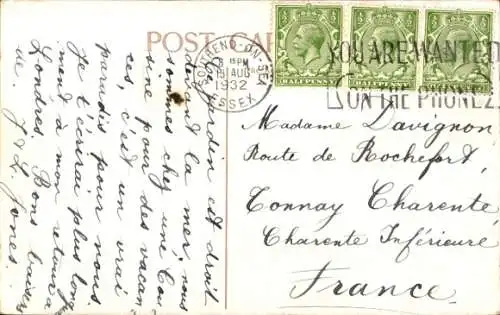 POST CARD
SOUTHEND-ON-SEA
15 AUG
1932
ESSEX
YOU ARE WANTED
ON THE PHONE
HALFPENNY
HALFPENNY
HALFPENNY
jardin est droit
devant la mer, nous
sommes chez une Cou
sine pour des vacan
ces, c'est un vrai
paradis pour nous.
Je t'écrirai plus long
ment à mon retour à
Londres. Bons baisers
de J & L. Jones.
Madame Davignon,
Route de Rochefort,
Tonnay Charente,
Charente Inférieure
France.